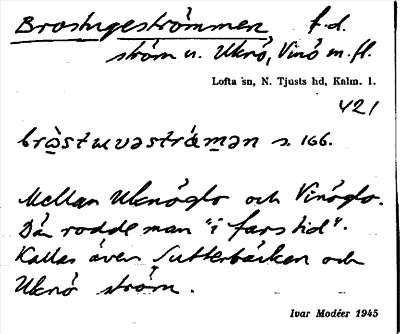 Brostugeströmmen f.d.
ström u. Uknö, Vinö m.fl.
Lofta sn, N. Tjusts hd, Kalm. l.
421
bròstuvəstrø̀mən s. 166.
Mellan Uknöglo och Vinöglo.
Där rodde man "i fars tid".
Kallas även Sutterbäcken och
Uknö ström.
Ivar Modéer 1945